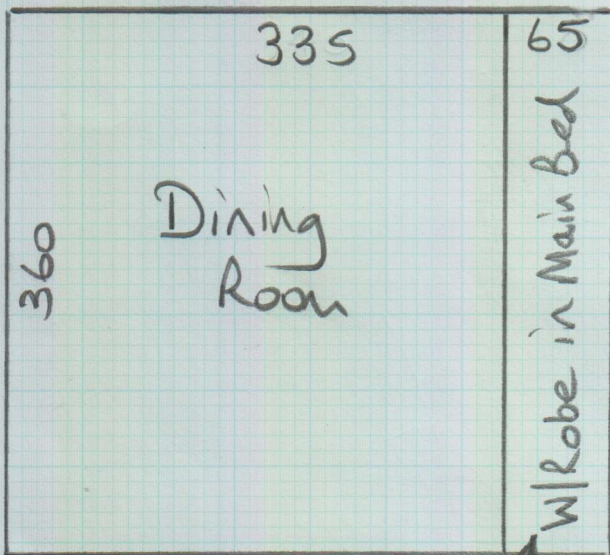 335
65
360
Dining
Room
W/Robe in Main Bed